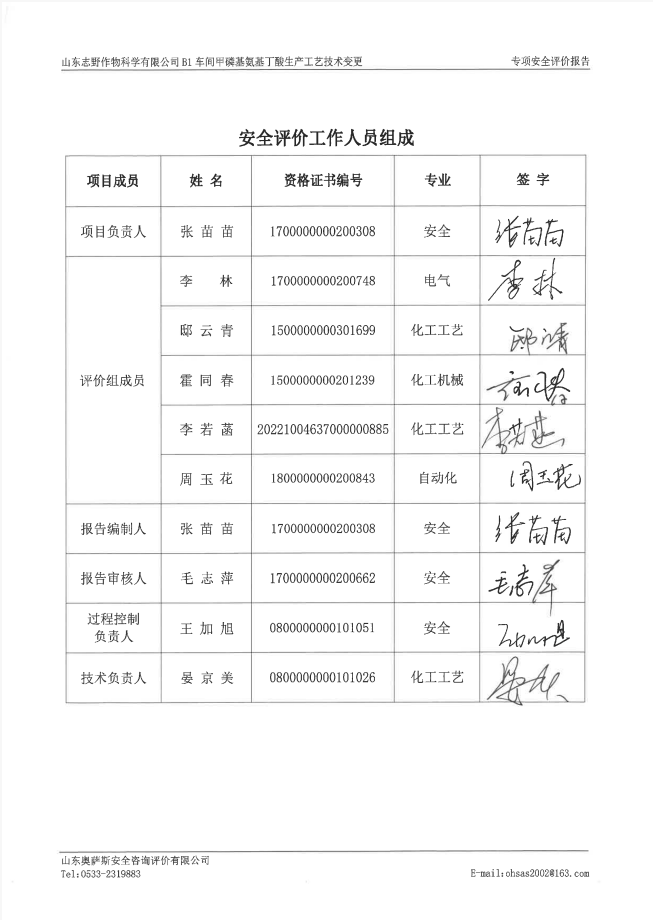 山东志野作物科学有限公司 B1 车间甲磷基氨基丁酸生产工艺技术变更 专项安全评价报告
安全评价工作人员组成
项目成员 姓 名 资格证书编号 专业 签 字
项目负责人 张 苗 苗 1700000000200308 安全 张苗苗
评价组成员 李 林 1700000000200748 电气 李林
邸 云 青 1500000000301699 化工工艺
霍 同 春 1500000000201239 化工机械
李 若 菡 20221004637000000885 化工工艺
周 玉 花 1800000000200843 自动化 周玉花
报告编制人 张 苗 苗 1700000000200308 安全 张苗苗
报告审核人 毛 志 萍 1700000000200662 安全 毛志萍
过程控制
负责人 王 加 旭 0800000000101051 安全
技术负责人 晏 京 美 0800000000101026 化工工艺
山东奥萨斯安全咨询评价有限公司
Tel:0533-2319883 E-mail:ohsas2002@163.com